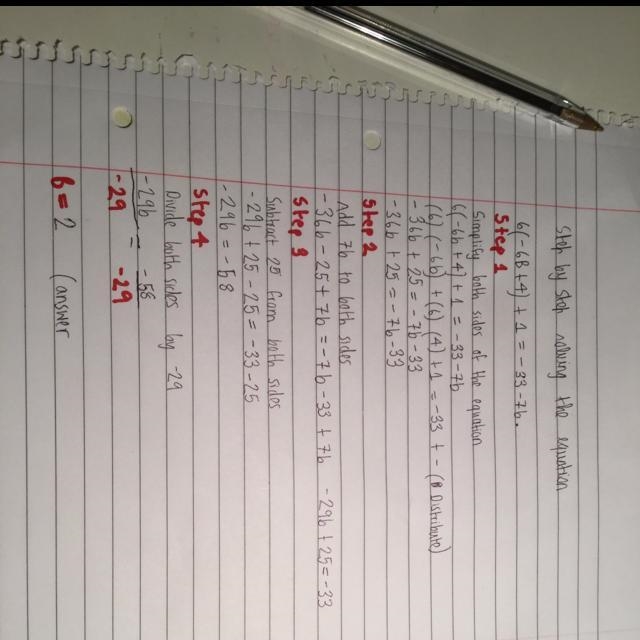 Step by step solving the equation
6(-6b+4)+1=-33-7b.
Step 1
Simplify both sides of the equation
6(-6b+4)+1=-33-7b
(6)(-6b)+(6)(4)+1=-33+- (Distribute)
-36b+25=-7b-33
-36b+25=-7b-33
Step 2
Add 7b to both sides
-36b-25+7b=-7b-33+7b -29b+25=-33
Step 3
Subtract 25 from both sides
-29b+25-25=-33-25
-29b=-58
Step 4
Divide both sides by -29
-29b = -58
-29 -29
b=2 (answer